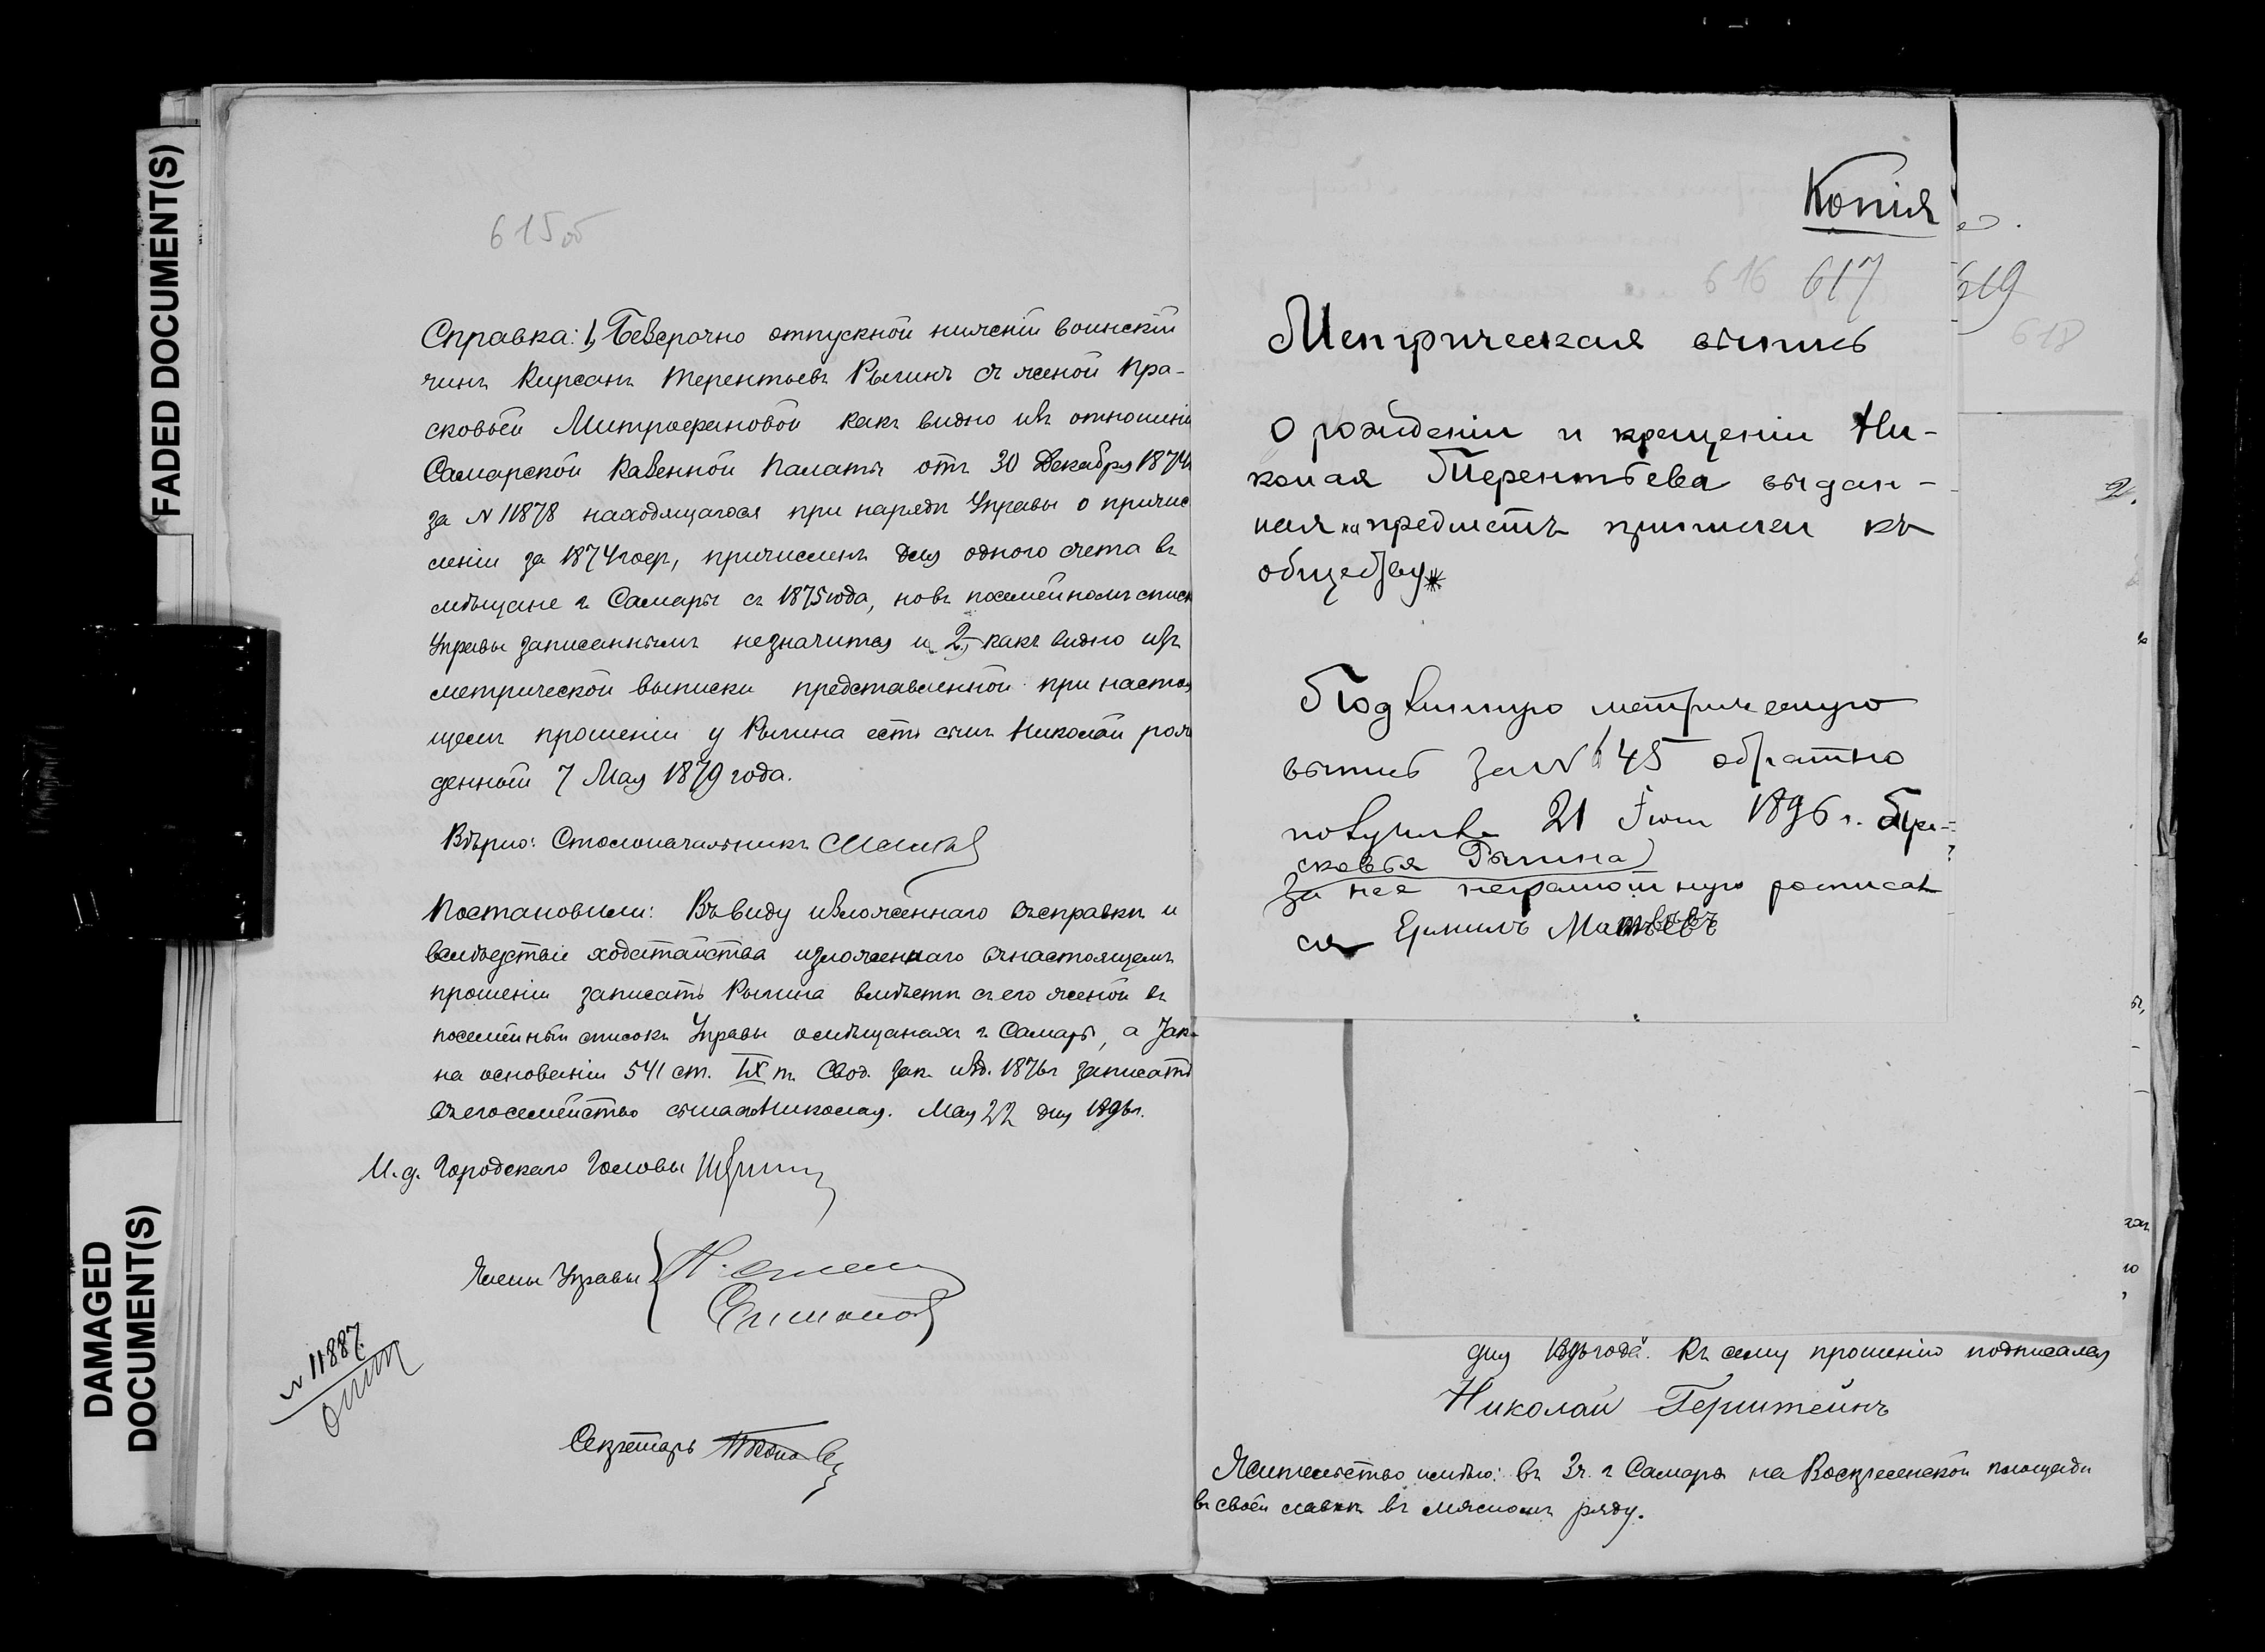 FADED DOCUMENT(S)
DAMAGED
DOCUMENT(S)
615 об
Справка: 1, Безсрочно отпускной нижній воинскій
чинъ Кирсанъ Терентьевъ Рылинъ съ женой Пра-
сковьей Митрофановой какъ видно изъ отношені
Самарской Казенной Палаты отъ 30 Декабря 1874
за N 11878 находящагося при наряде Управы о причис
леніи за 1874 годъ, причисленъ для одного счета въ
мѣщане г. Самары съ 1875 года, но въ посемейномъ списк
Управы записаннымъ не значится и 2, какъ видно изъ
метрической выписки представленной при настоя
щемъ прошеніи у Рылина есть сынъ Николай рож
денный 7 Мая 1879 года.
Вѣрно: Столоначальникъ
Постановили: Въ виду изложеннаго въ справки и
вслѣдствіе ходатайства изложеннаго в настоящемъ
прошеніи записать Рылина вмѣстѣ съ его женой въ
посемейный списокъ Управы о мѣщанахъ г. Самары, а
на основаніи 541 ст. IX т. Свод. Зак. изд. 1876 г записать
въ его семейство сына его Николая. Мая 22 дня 1896 г.
И. д. Городскаго Головы
Члены Управы
N 11887
Секретарь
Копія
616 617
Метрическая выпись
О рожденіи и крещеніи Ни-
колая Терентьева выдан-
ная на предметъ приписки къ
обществу
Подлинную метрическую
выпись за N 645 обратно
получила 21 Іюня 1896 г. Пра-
сковья Рылина
За нее неграмотную росписал
ся Ермилъ Матвѣевъ
619
618
2.
дня 1896 года. Къ сему прошенію подписался
Николай Герштейнъ
Жительство имѣю: въ 3 ч. г Самары на Воскресенской площади
въ своей лавкѣ въ мясномъ ряду.